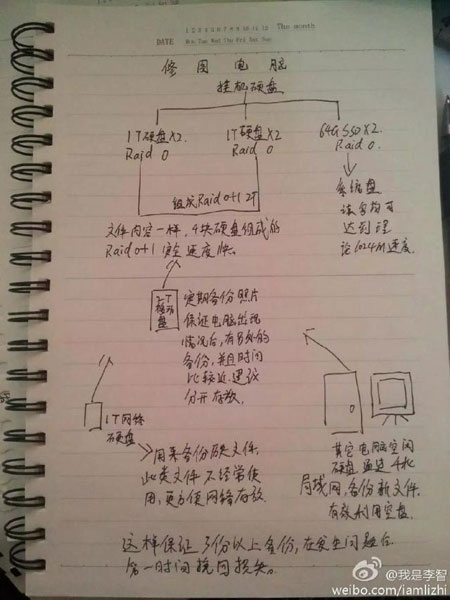 1 2 3 4 5 6 7 8 9 10 11 12 The month
DATE Mon Tue Wed Thu Fri Sat Sun
修图电脑
挂机硬盘
1T硬盘X2
Raid 0
1T硬盘X2
Raid 0
64G SSD X2
Raid 0
组成Raid 0+1 2T
系统盘
读写均可
达到理
论1024M速度
文件内容一样,4块硬盘组成的
Raid 0+1 安全速度快。
2T
移动
盘
定期备份照片
保证电脑出现
情况后,有另外的
备份,并且时间
比较近,建议
分开存放
1T网络
硬盘
用来备份原始文件
此类文件不经常使
用,更方便网络存放
其它电脑空闲
硬盘通过千兆
局域网,备份新文件
有效利用空盘
这样保证3份以上备份,在发生问题后
第一时间挽回损失。
@我是李智
weibo.com/iamlizhi